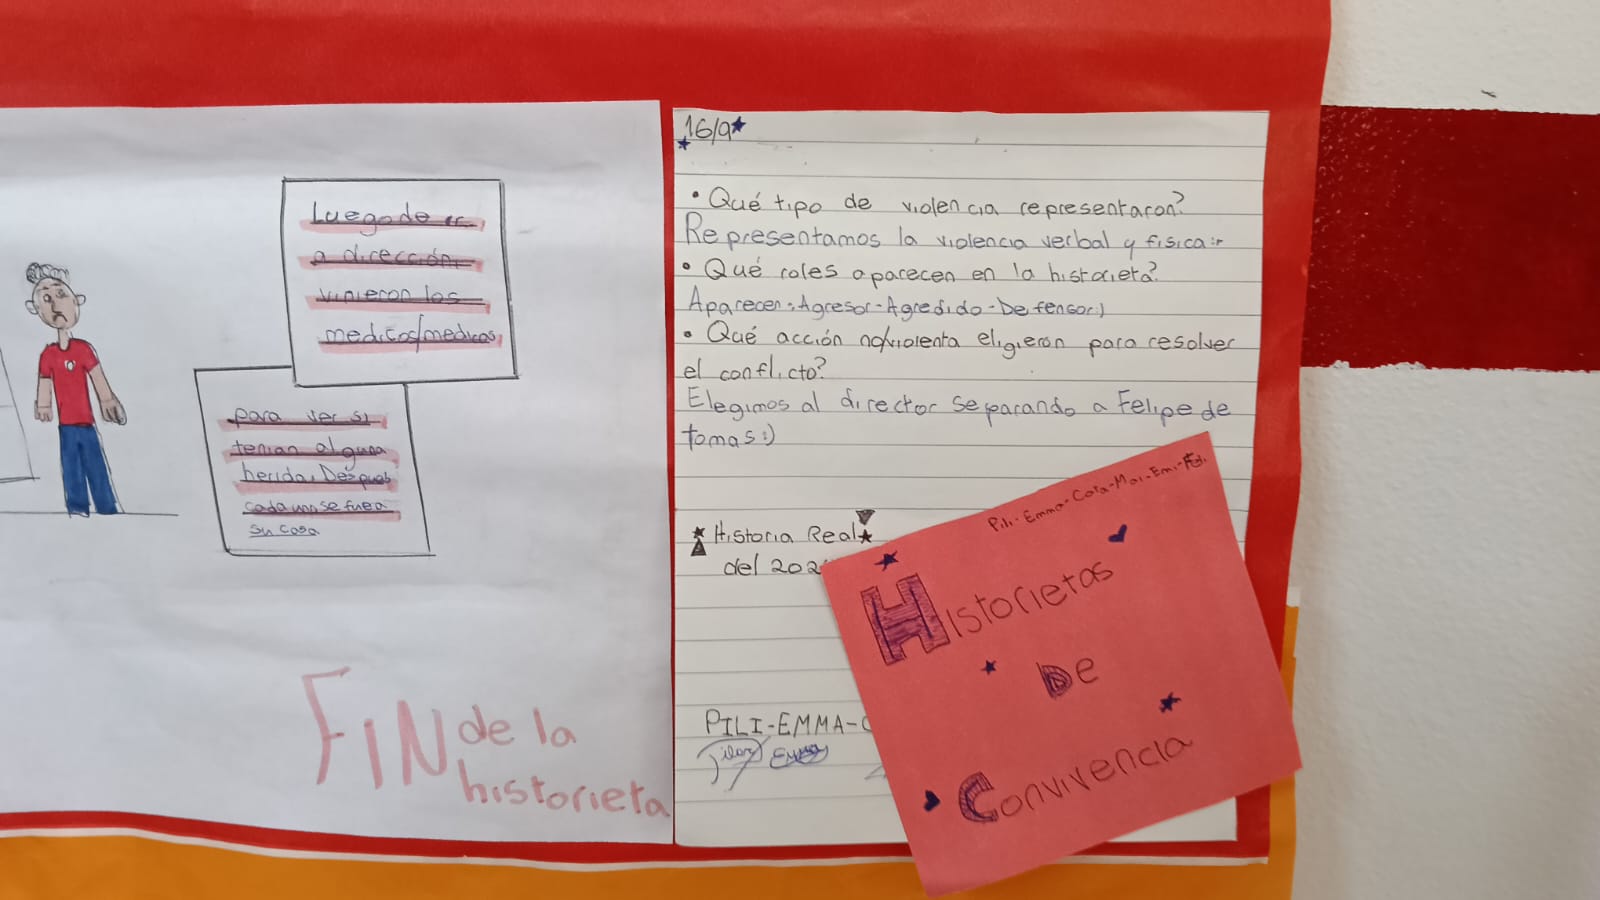 Luego de ir
a dirección,
vinieron los
medicos/medicas
para ver si
tenian alguna
herida. Después
cada uno se fue a
su casa
FIN de la
historieta
16/9
• Qué tipo de violencia representaron?
Representamos la violencia verbal y fisica:
• Qué roles aparecen en la historieta?
Aparecen: Agresor-Agredido-Defensor:)
• Qué acción no/violenta eligieron para resolver
el conflicto?
Elegimos al director separando a Felipe de
tomas:)
Historia Real
del
PILI-EMMA-C
Pilar Emma
Pili-Emma-Cata-Mai-Emi-Feli
Historietas
De
Convivencia